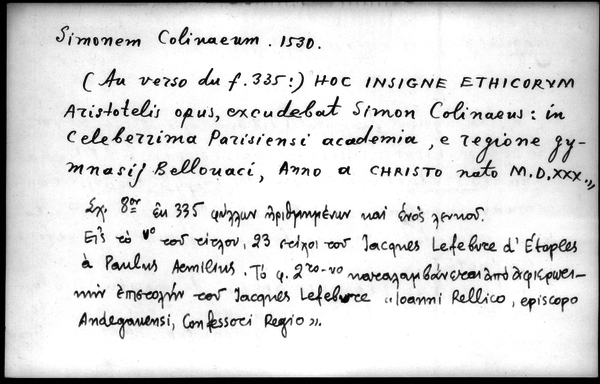 Simonem Colinaeum. 1530.
(Au verso du f. 335:) HOC INSIGNE ETHICORVM
Aristotelis opus, excudebat Simon Colinaeus: in
celeberrima Parisiensi academia, e regione gy-
mnasij Bellouaci, Anno a CHRISTO nato M.D.XXX.»
Σχ. 8ον ἐκ 335 φύλλων ἀριθμημένων καὶ ἑνὸς λευκοῦ.
Εἰς τὸ vo τοῦ τίτλου, 23 στίχοι τοῦ Jacques Lefebvre d'Étaples
à Paulus Aemilius. Τὸ φ. 2ro-vo καταλαμβάνεται ἀπὸ ἀφιερωτι-
κὴν ἐπιστολὴν τοῦ Jacques Lefebvre «Ioanni Rellico, episcopo
Andegauensi, Confessori Regio».